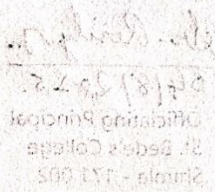 04/8/2025
Officiating Principal
St. Bede's College
Shimla - 171 002